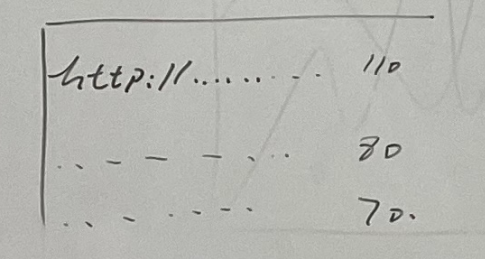 http://......... 110
.. - - - ... 80
.. - .---. 70.